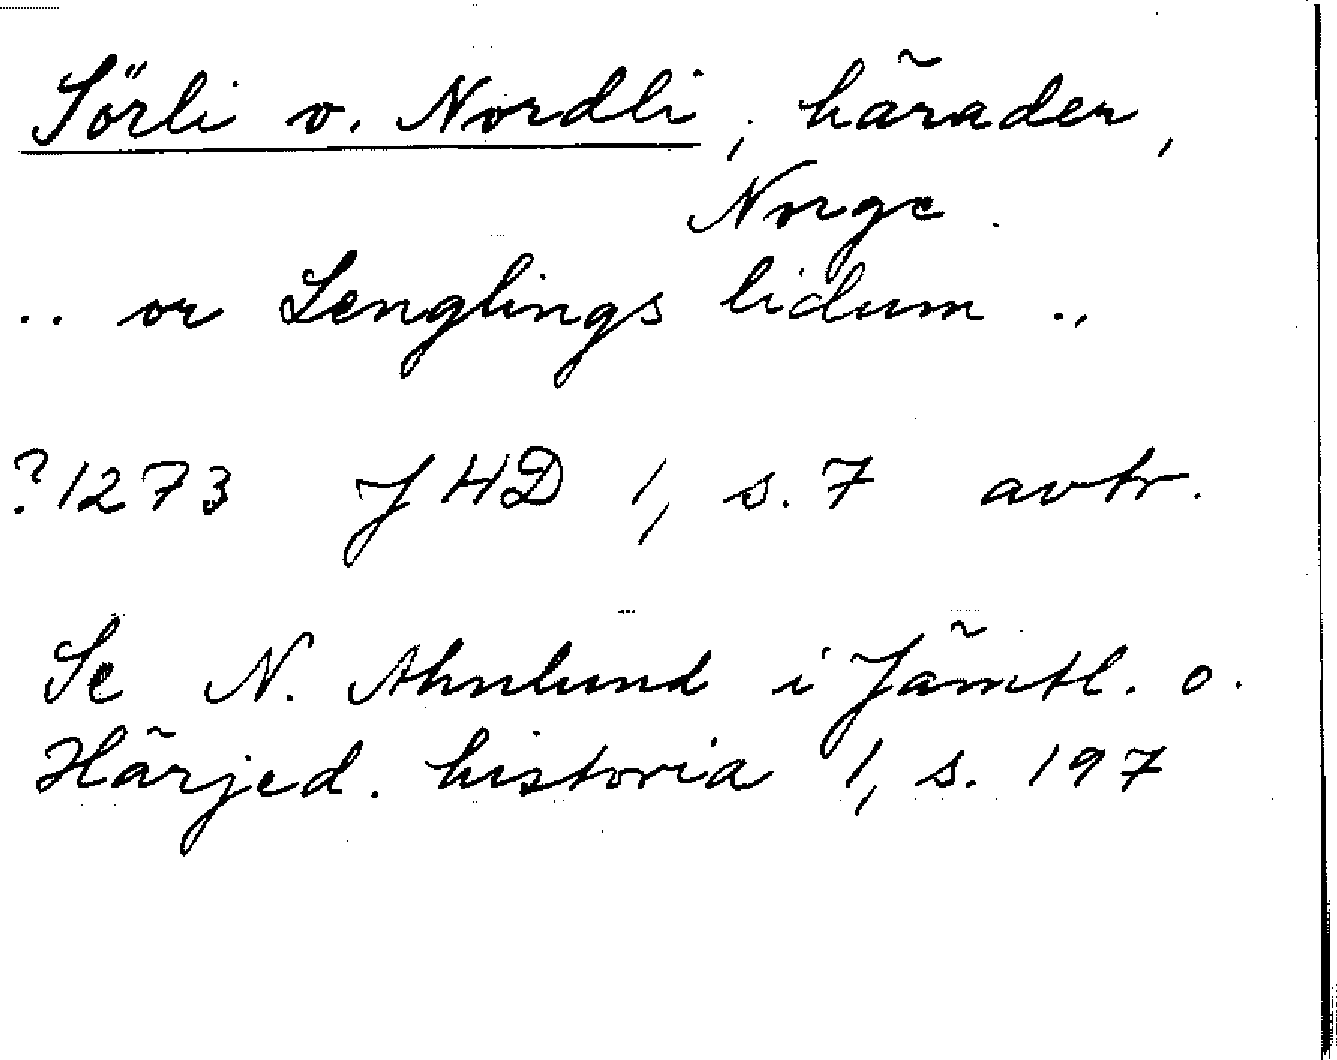 Sörli o. Nordli, härader,
Norge.
.. or Lenglings lidum ..
?1273 JHD 1, s. 7 avtr.
Se N. Ahnlund i Jämtl. o.
Härjed. historia 1, s. 197